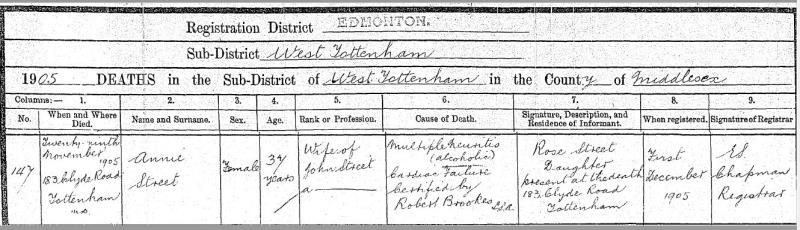 Registration District EDMONTON.
Sub-District West Tottenham
1905 DEATHS in the Sub-District of West Tottenham in the County of Middlesex
Columns:— 1. 2. 3. 4. 5. 6. 7. 8. 9.
No. When and Where Died. Name and Surname. Sex. Age. Rank or Profession. Cause of Death. Signature, Description, and Residence of Informant. When registered. Signature of Registrar
147
Twenty-ninth
November 1905
183, Clyde Road
Tottenham
Annie
Street
Female
37
years
Wife of
John Street
a
Multiple Neuritis
(alcoholic)
Cardiac Failure
Certified by
Robert Brookes L.S.A.
Rose Street
Daughter
present at the death
183, Clyde Road
Tottenham
First
December
1905
Chapman
Registrar